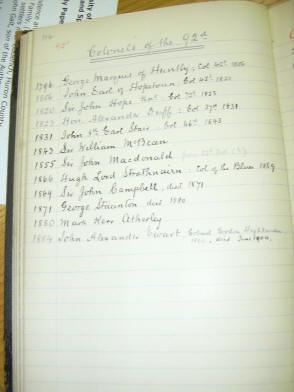 Colonels of the 92d
1796 George Marquis of Huntly: Col 42d. 1806
1806 John Earl of Hopetoun: Col 42d. 1820
1820 Sir John Hope Knt. Col 72d. 1823
1823 Hon. Alexander Duff: Col 37th 1831
1831 John 8th Earl Stair: Col 46th 1843
1843 Sir William McBean
1855 Sir John Macdonald
1866 Hugh Lord Strathnairn: Col of the Blues 1869
1869 Sir John Campbell, died 1871
1871 George Staunton died 1880
1880 Mark Kerr Atherley
1884 John Alexander Ewart Colonel Gordon Highlanders
died June 1904.